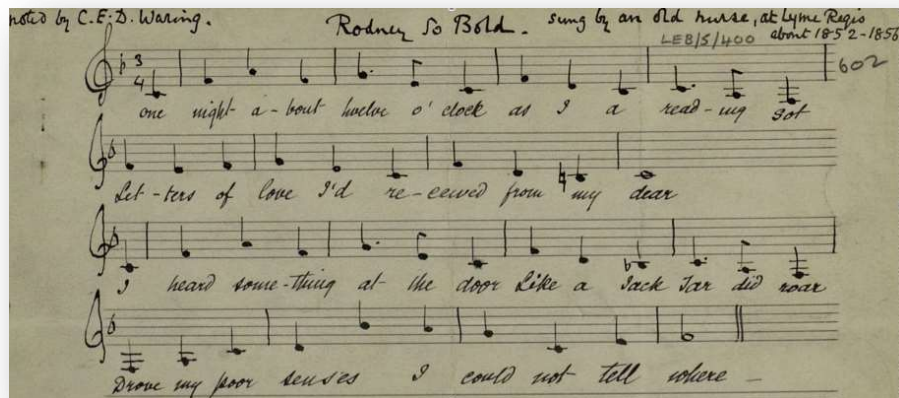 noted by C.E.D. Waring. Rodney So Bold. sung by an old nurse, at Lyme Regis
LEB/5/400 about 1852-1856
3
4
602
one night a-bout twelve o'clock as I a read-ing sot
Let-ters of love I'd re-ceived from my dear
I heard some-thing at the door Like a Jack Tar did roar
Drove my poor senses I could not tell where -